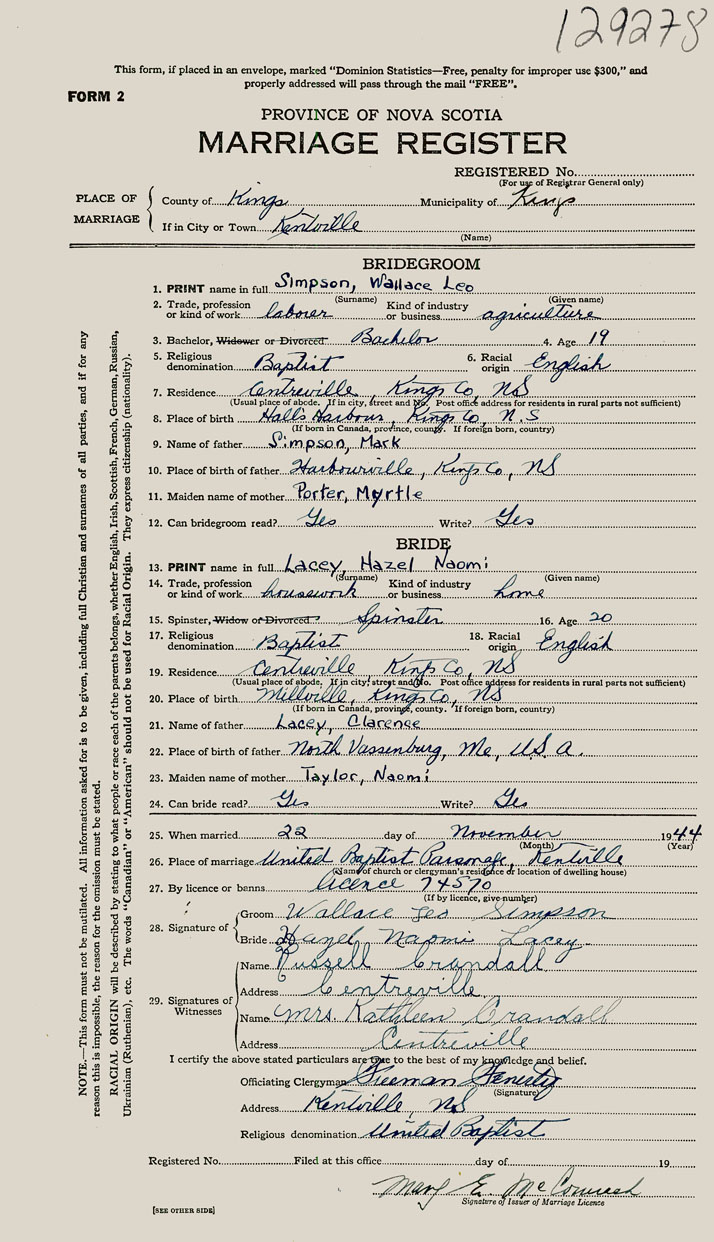 129278
This form, if placed in an envelope, marked "Dominion Statistics—Free, penalty for improper use $300," and
properly addressed will pass through the mail "FREE".
FORM 2
PROVINCE OF NOVA SCOTIA
MARRIAGE REGISTER
REGISTERED No.
(For use of Registrar General only)
PLACE OF MARRIAGE
County of Kings Municipality of Kings
If in City or Town Kentville
(Name)
BRIDEGROOM
1. PRINT name in full Simpson, Wallace Leo
(Surname) (Given name)
2. Trade, profession or kind of work laborer Kind of industry or business agriculture
3. Bachelor, Widower or Divorced Bachelor 4. Age 19
5. Religious denomination Baptist 6. Racial origin English
7. Residence Centreville, Kings Co, NS
(Usual place of abode. If in city, street and No. Post office address for residents in rural parts not sufficient)
8. Place of birth Halls Harbour, Kings Co, N.S
(If born in Canada, province, county. If foreign born, country)
9. Name of father Simpson, Mark
10. Place of birth of father Harbourville, Kings Co, NS
11. Maiden name of mother Porter, Myrtle
12. Can bridegroom read? Yes Write? Yes
BRIDE
13. PRINT name in full Lacey, Hazel Naomi
(Surname) (Given name)
14. Trade, profession or kind of work housework Kind of industry or business home
15. Spinster, Widow or Divorced Spinster 16. Age 20
17. Religious denomination Baptist 18. Racial origin English
19. Residence Centreville Kings Co, NS
(Usual place of abode. If in city, street and No. Post office address for residents in rural parts not sufficient)
20. Place of birth Millville, Kings Co, NS
(If born in Canada, province, county. If foreign born, country)
21. Name of father Lacey, Clarence
22. Place of birth of father North Vassenburg, Me, U.S.A.
23. Maiden name of mother Taylor, Naomi
24. Can bride read? Yes Write? Yes
25. When married 22 day of November 1944
(Month) (Year)
26. Place of marriage United Baptist Parsonage, Kentville
(Name of church or clergyman's residence or location of dwelling house)
27. By licence or banns licence 74570
(If by licence, give number)
28. Signature of
Groom Wallace Leo Simpson
Bride Hazel Naomi Lacey
29. Signatures of Witnesses
Name Russell Crandall
Address Centreville
Name Mrs Kathleen Crandall
Address Centreville
I certify the above stated particulars are true to the best of my knowledge and belief.
Officiating Clergyman Freeman Fenerty
(Signature)
Address Kentville, NS
Religious denomination United Baptist
Registered No. Filed at this office day of 19
Mary E.
Signature of Issuer of Marriage Licence
[SEE OTHER SIDE]
NOTE.—This form must not be mutilated. All information asked for is to be given, including full Christian and surnames of all parties, and if for any
reason this is impossible, the reason for the omission must be stated.
RACIAL ORIGIN will be described by stating to what people or race each of the parents belongs, whether English, Irish, Scottish, French, German, Russian,
Ukrainian (Ruthenian), etc. The words "Canadian" or "American" should not be used for Racial Origin. They express citizenship (nationality).